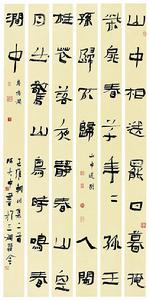 山中相送罷日暮掩
柴扉春草年〻綠王
孫歸不歸 山中送別 人閒
桂花落夜靜春山空
月出驚山鳥時鳴春
澗中 鳥鳴澗